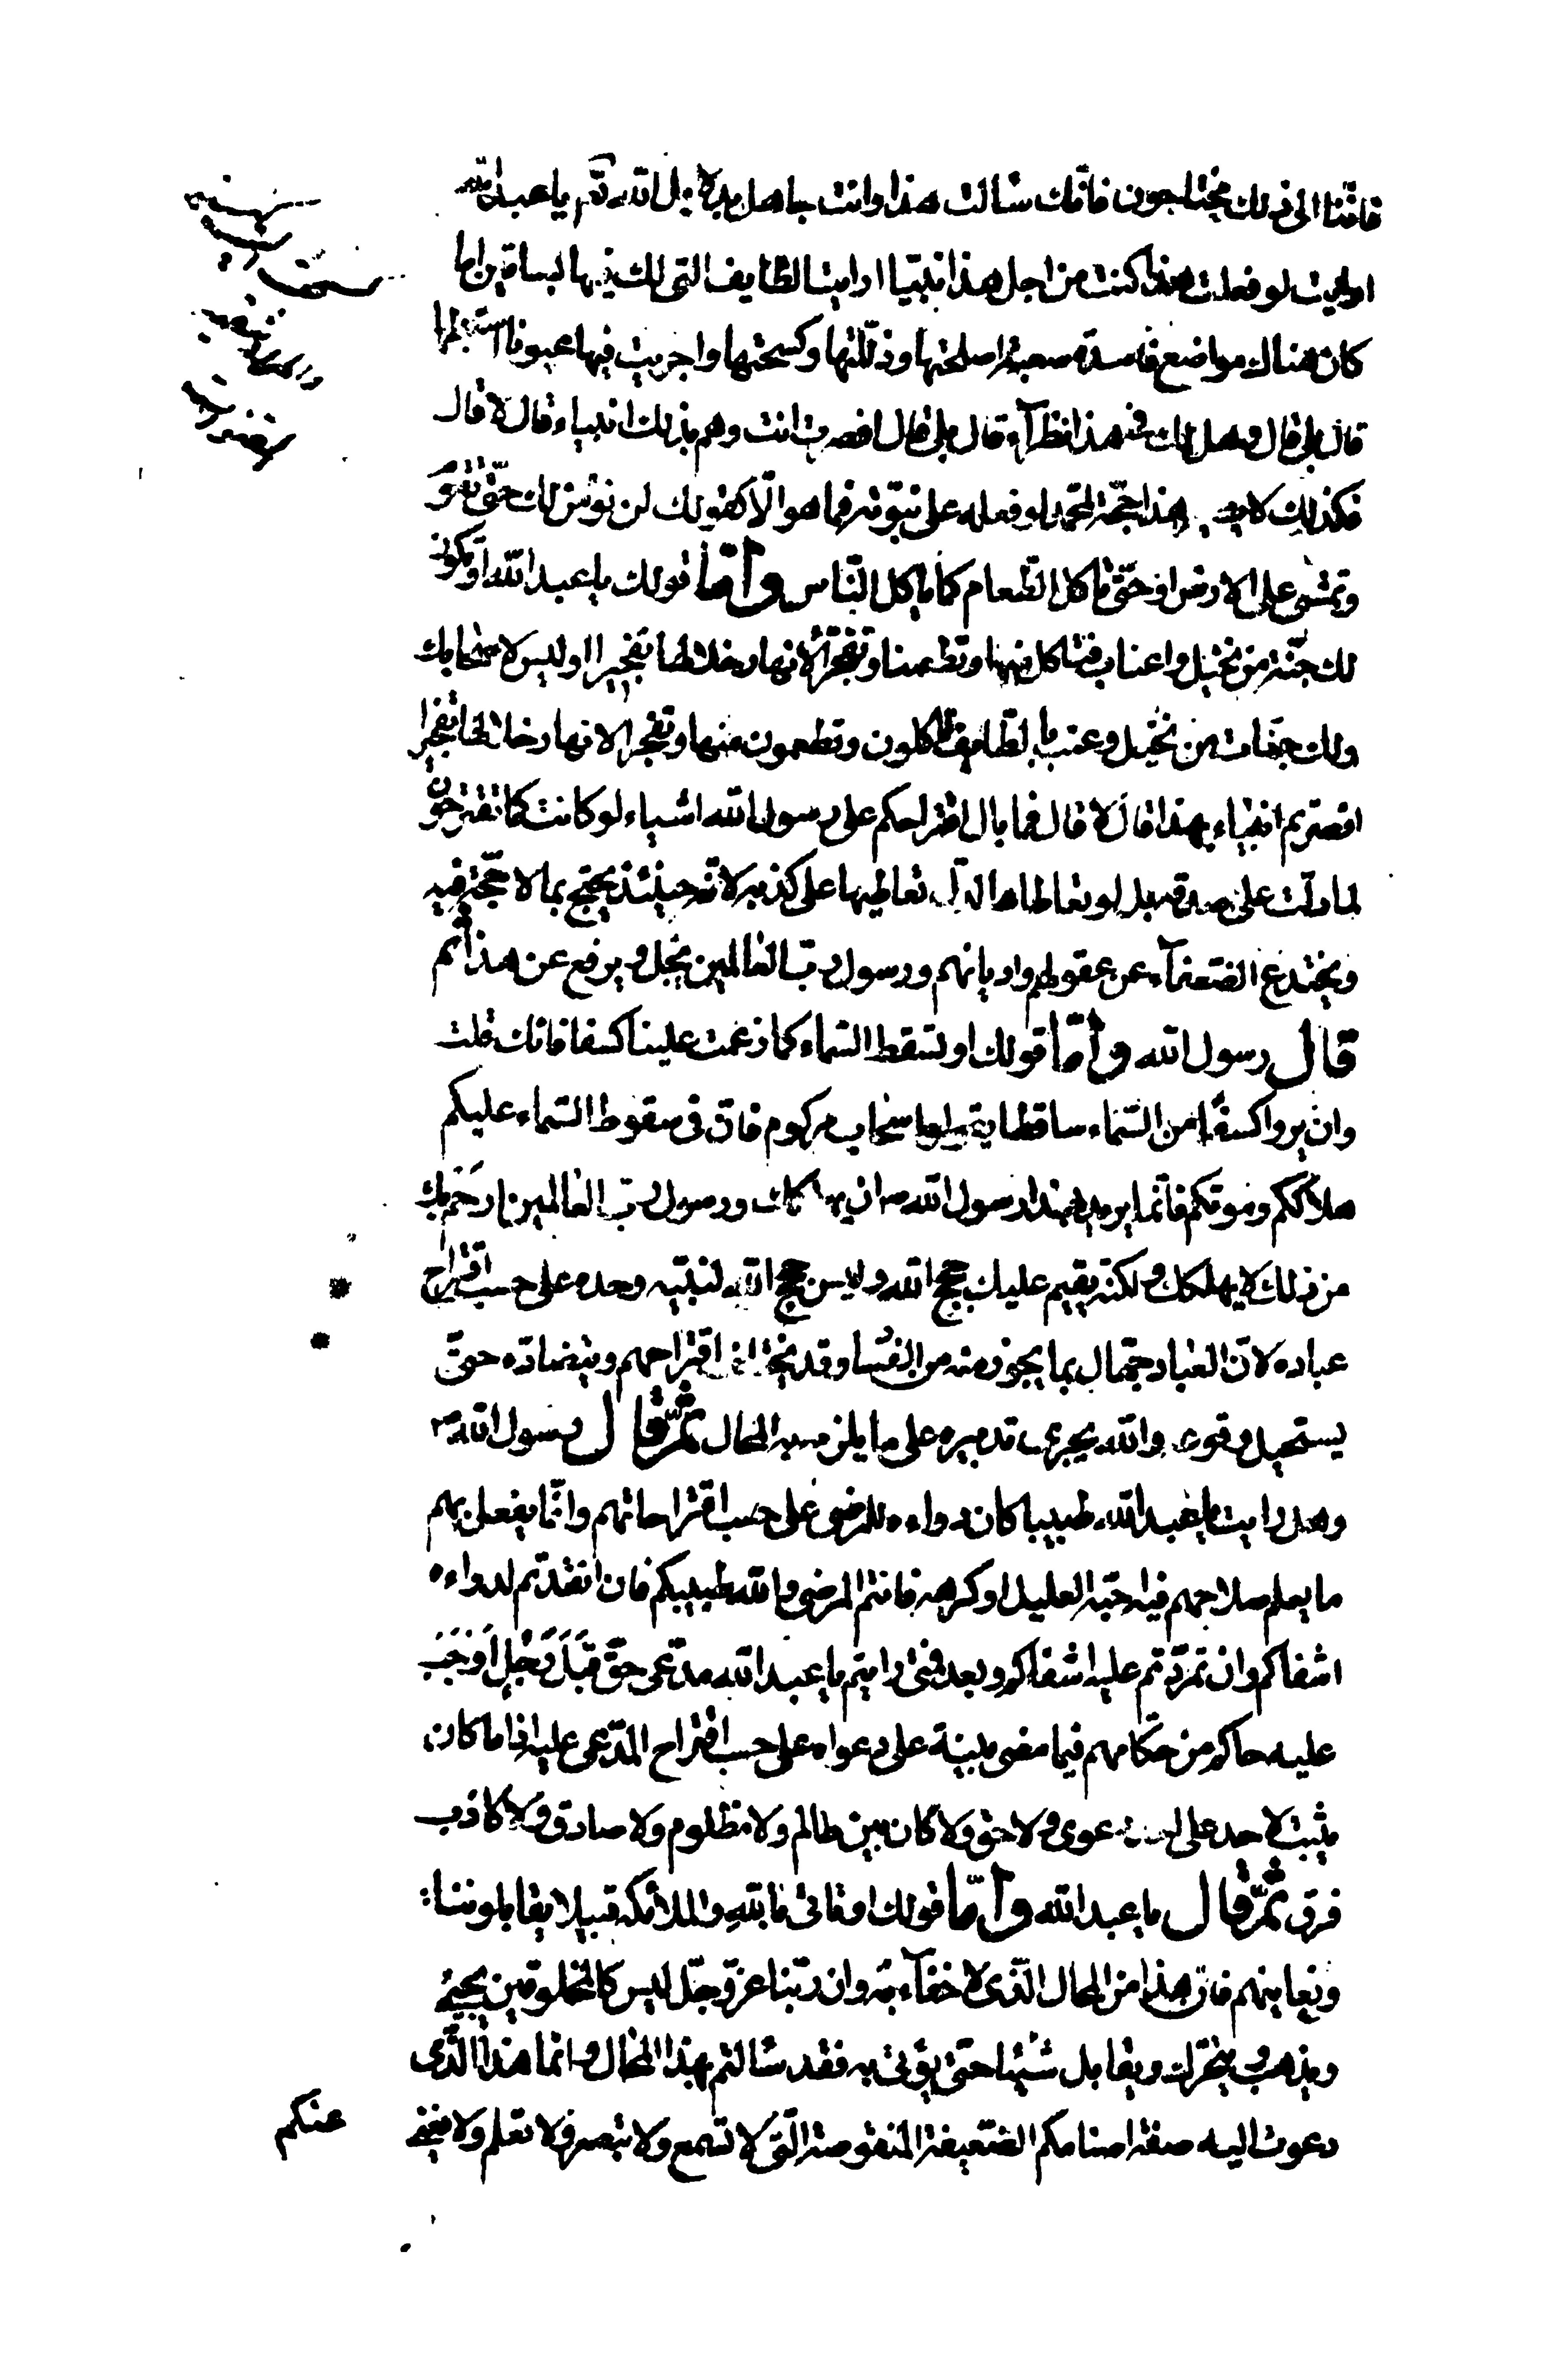 فاننا الى ذلك محتاجون فانك سالت هذا وانت جاهل بدلايل الله تعم يا عبد الله
ارايت لو فعلت هذا كنت من اجل هذا نبيا ارايت الطايف التى لك فيها بساتين اما
كان هناك مواضع فاسدة صعبة اصلحتها وذللتها وكسحتها واجريت فيها عيونا استنبطتها
قال بلى قال وهل لك فى هذا نظرآء قال بلى قال افصرت انت وهم بذلك انبياء قال لا قال
فكذلك لا يصير هذا حجة لمحمد لو فعله على نبوته فما هو الا كقولك لن نؤمن لك حتى تقوم
وتمشى على الارض او حتى تاكل الطعام كما ياكل الناس واما قولك يا عبد الله او تكون
لك جنة من نخيل واعناب فتاكل منها وتطعمنا وتفجر الانهار خلالها تفجيرا اوليس لاصحابك
ولك جنات من نخيل وعنب بالطايف تاكلون وتطعمون منها وتفجر الانهار خلالها تفجيرا
افصرتم انبياء بهذا قال لا قال فما بال اقتراحكم على رسول الله اشياء لو كانت كما تقترحون
لما دلت على صدقه بل لو تعاطاها لدل تعاطيها على كذبه لانه حينئذ يحتج بما لا حجة فيه
ويختدع الضعفآء عن عقولهم واديانهم ورسول رب العالمين يجل ويرفع عن هذا ثم
قال رسول الله واما قولك او تسقط السماء كما زعمت علينا كسفا فانك قلت
وان يروا كسفا من السماء ساقطا يقولوا سحاب مركوم فان فى سقوط السماء عليكم
هلاككم وموتكم فانما تريد بهذا رسول الله ص ان يهلكك ورسول رب العالمين ارحم بك
من ذلك لا يهلكك ولكنه يقيم عليك حجج الله وليس حجج الله لنبيه وحده على حسب اقتراح
عباده لان العباد جهال بما يجوز منه من الفساد وقد يختلف اقتراحهم ويتضاده حتى
يستحيل وقوعه والله يجرى تدبيره على ما يلزم به المحال ثم قال رسول الله ص
وهل رايت يا عبد الله طبيبا كان دواءه للمرضى على حسب اقتراحاتهم وانما يفعل بهم
ما يعلم صلاحهم فيه احبه العليل او كرهه فانتم المرضى والله طبيبكم فان انقدتم لدواءه
اشفاكم وان تمردتم عليه اشفاكم وبعد فمتى رايتم يا عبد الله مدعى حق قبل رجل اوجب
عليه حاكم من حكامهم فيما مضى بينة على دعواه على حسب اقتراح المدعى عليه اذا ما كان
يثبت لاحد على احد دعوى ولا حق ولا كان بين ظالم ولا مظلوم ولا صادق ولا كاذب
فرق ثم قال يا عبد الله واما قولك او تاتى بالله والملائكة قبيلا يقابلوننا
ونعاينهم فان هذا من المحال الذى لا خفآء به وان ربنا عز وجل ليس كالمخلوقين يجيئ
ويذهب ويتحرك ويقابل شيئا حتى يؤتى به فقد سالتم بهذا المحال وانما هذا الذى
دعوت اليه صفة اصنامكم الضعيفة المنقوصة التى لا تسمع ولا تبصر ولا تعلم ولا تغنى
عنكم